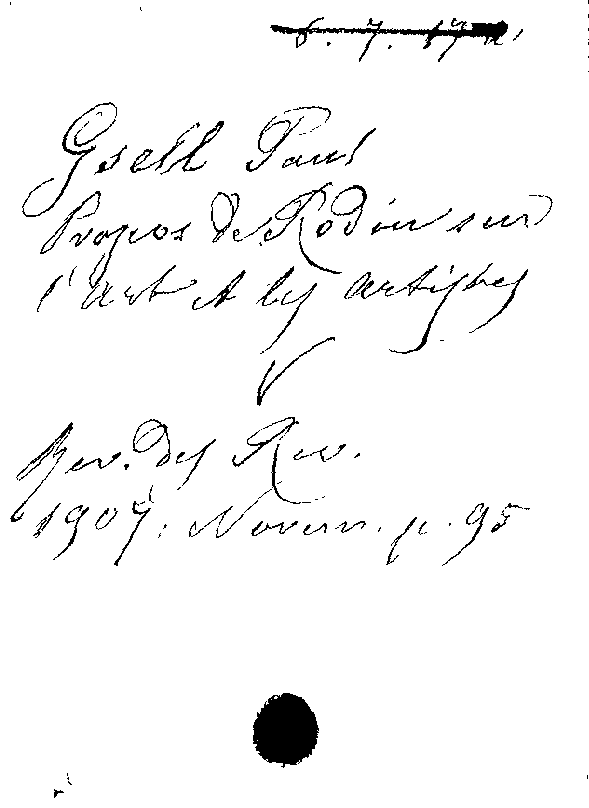 Gsell Paul
Propos de Rodin sur
l'art et les artistes
Rev. des Rev.
1907. Novem. p. 95